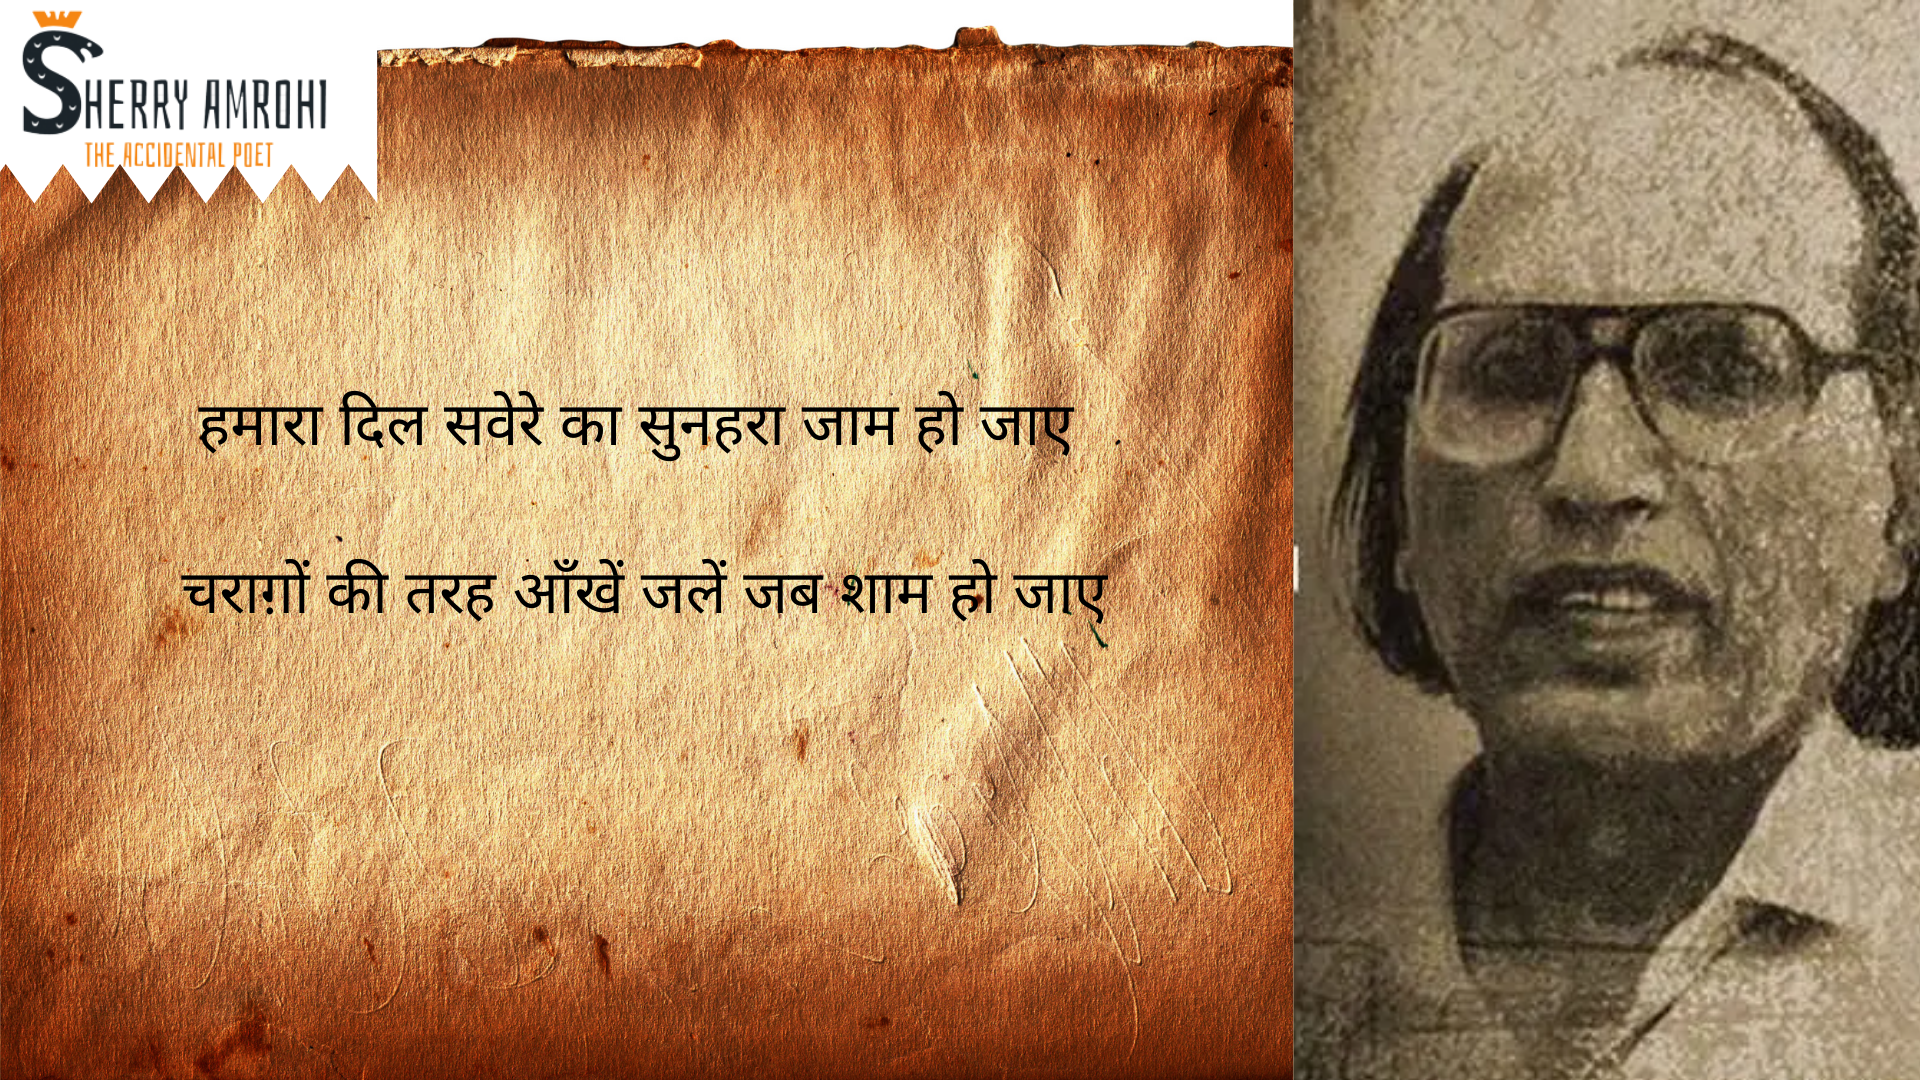 SHERRY AMROHI
THE ACCIDENTAL POET
हमारा दिल सवेरे का सुनहरा जाम हो जाए
चराग़ों की तरह आँखें जलें जब शाम हो जाए